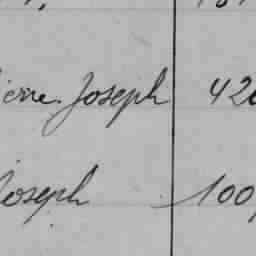 ierre Joseph 420
Joseph 100